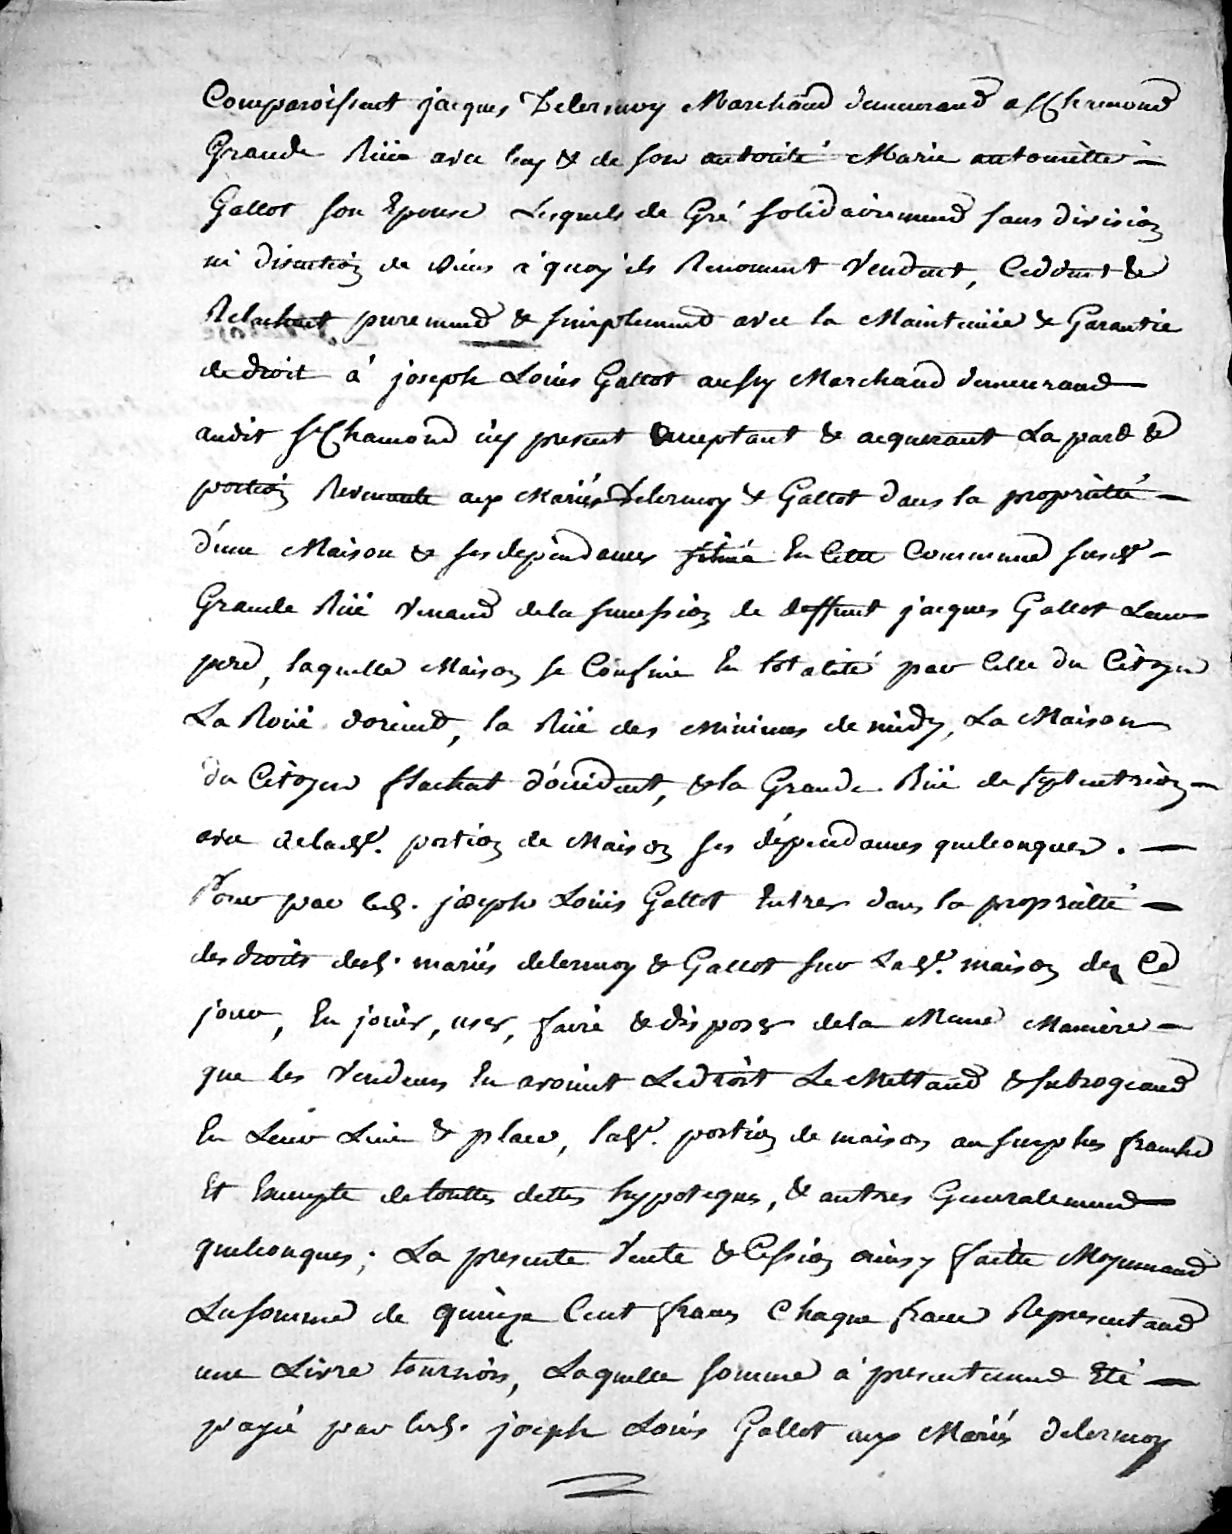 Comparoissent jacques Delermoy Marchand demeurand a St Chermond
Grande Rüe avec luy & de son autorité Marie antoinette
Gallot son Epouse Lesquels de Gré solidairement sans division
ni discution de biens a quoy ils Renoncent Vendent, Ceddent &
Relachent purement & simplement avec la Maintenüe & Garantie
de droit à joseph Loüis Gallot aussy Marchand demeurand
audit St Chamond icy present acceptant & acquerant La part &
portion Revenante aux Mariés Delermoy & Gallot dans la proprieté
d'une Maison & ses dépendances située En Cette Commune susd.e
Grande Rüe Venand de la succession de deffunt jacques Gallot Leur
pere, laquelle Maison se Confine En totalité par Celle du Citoyen
La Roüe d'orient, la Rüe des Minimes de midy, La Maison
du Citoyen flachat d'occident, & la Grande Rüe de septentrion
avec de lad.e portion de Maison ses dépendances quelconques.
Pour par led. joseph Loüis Gallot Entrer dans la proprieté
des droits desd. mariés delermoy & Gallot sur Lad.e maison des Ce
jour, En joüir, user, faire & disposer de la Meme Maniere
que les Vendeurs En avoient Le droit Le Mettand & subrogeand
En Leur Lieu & place, lad.e portion de maison au surplus franche
Et Exempte de touttes dettes hypoteques, & autres Generalement
quelconques; La presente Vente & Cession ainsy faitte Moyennand
La somme de quinze Cent francs Chaque franc Representand
une Livre tournois, Laquelle somme a presentement Eté
payée par led. joseph Loüis Gallot aux Mariés delermoy